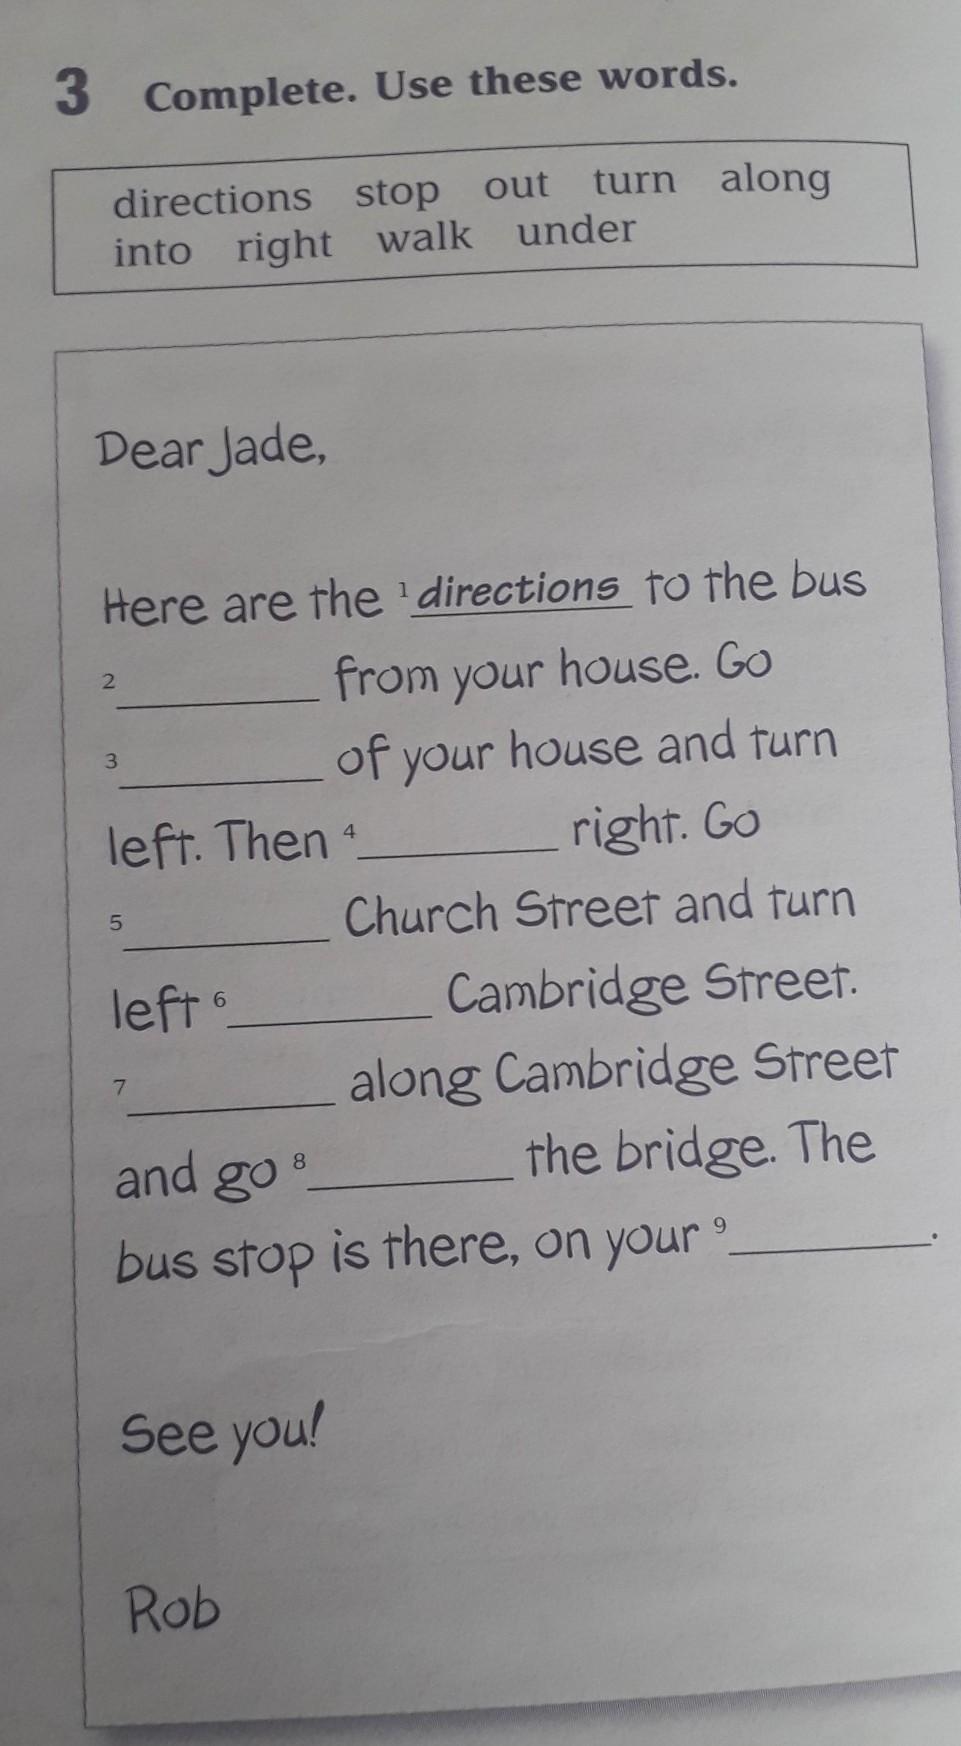 3 Complete. Use these words.
directions stop out turn along
into right walk under
Dear Jade,
Here are the 1 directions to the bus
2 __________ from your house. Go
3 __________ of your house and turn
left. Then 4 __________ right. Go
5 __________ Church Street and turn
left 6 __________ Cambridge Street.
7 __________ along Cambridge Street
and go 8 __________ the bridge. The
bus stop is there, on your 9 __________.
See you!
Rob